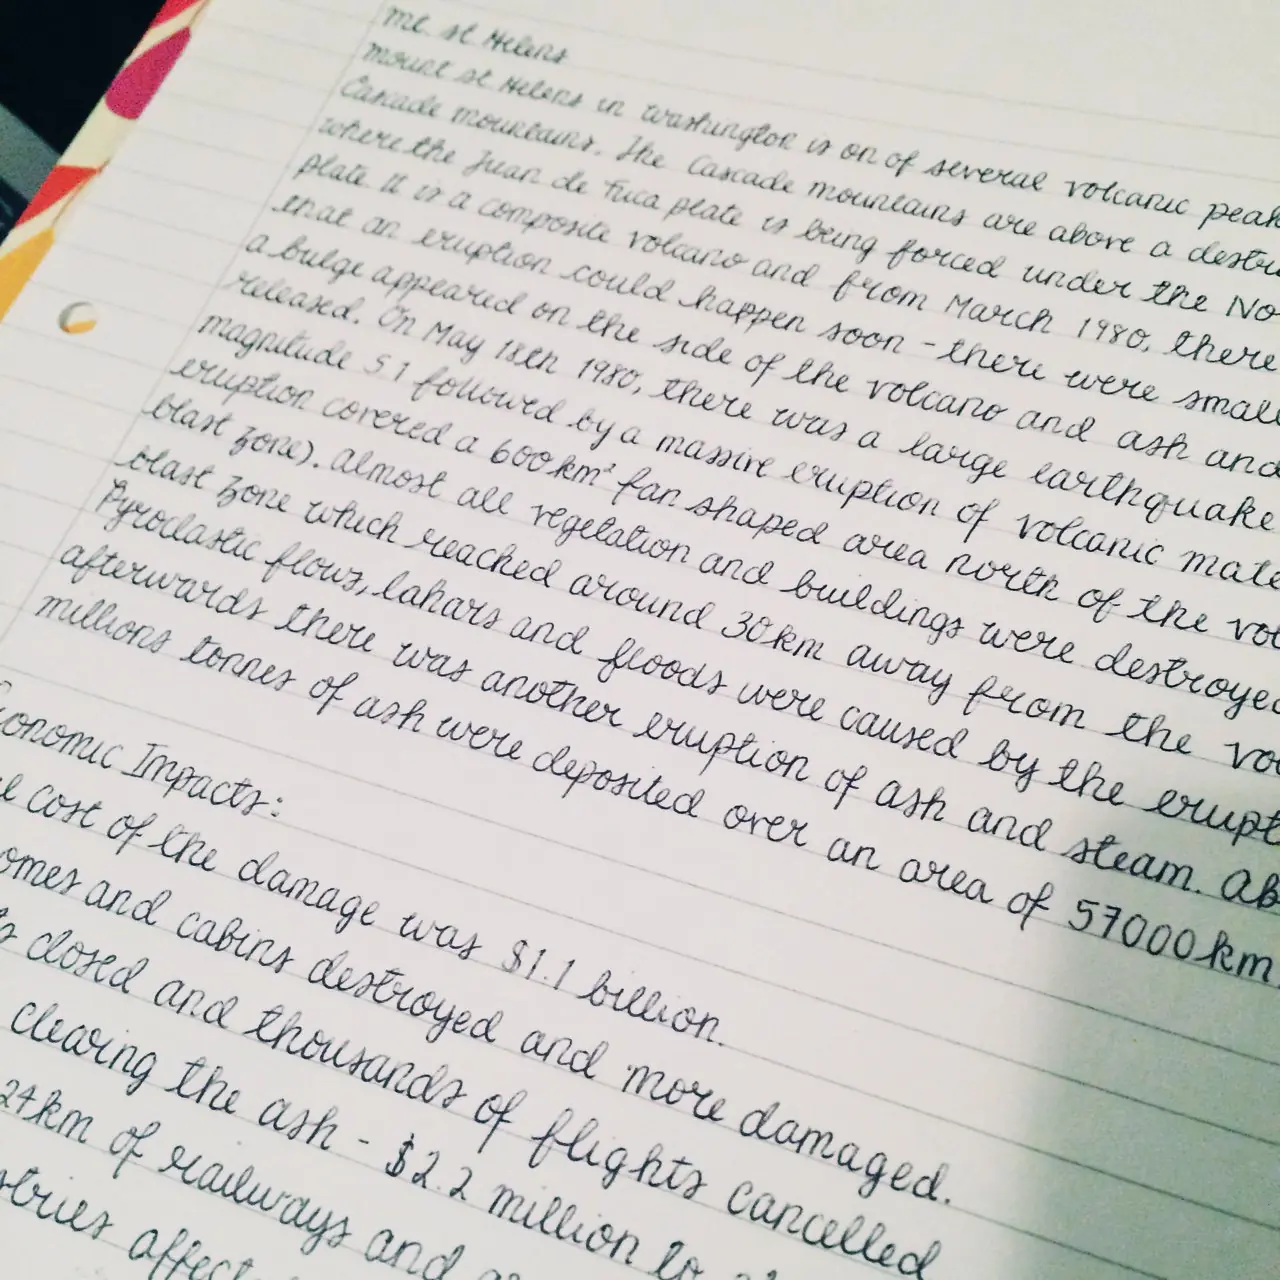 Mt. St Helens
Mount St Helens in Washington is on of several volcanic peak
Cascade mountains. The Cascade mountains are above a destru
where the Juan de Fuca plate is being forced under the No
plate. It is a composite volcano and from March 1980, there
that an eruption could happen soon - there were small
a bulge appeared on the side of the volcano and ash and
released. On May 18th 1980, there was a large earthquake
magnitude 5.1 followed by a massive eruption of volcanic mate
eruption covered a 600km² fan shaped area north of the vol
blast zone). Almost all vegetation and buildings were destroyed
blast zone which reached around 30km away from the vo
Pyroclastic flows, lahars and floods were caused by the erupt
afterwards there was another eruption of ash and steam. Ab
millions tonnes of ash were deposited over an area of 57000km
conomic Impacts:
cost of the damage was $1.1 billion.
omes and cabins destroyed and more damaged.
closed and thousands of flights cancelled
clearing the ash - $2.2 million to
24km of railways and
stries affect